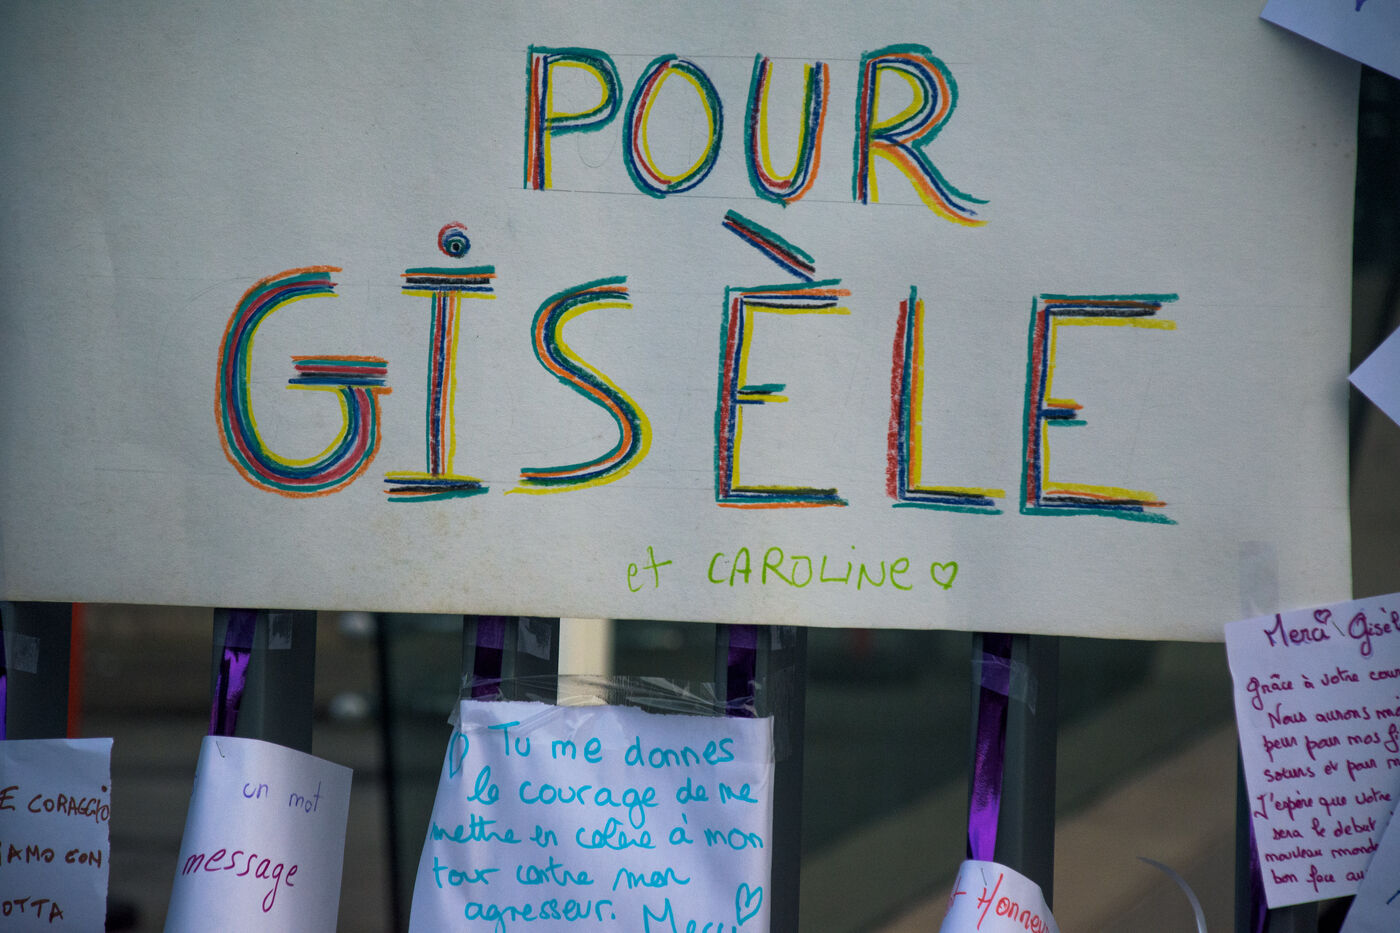 POUR
GISÈLE
et CAROLINE
E CORAGGIO
IAMO CON
OTTA
un mot
message
Tu me donnes
le courage de me
mettre en colère à mon
tour contre mon
agresseur. Merci
Honneu
Merci Gisèl
Grâce à votre cour
Nous aurons mo
peur pour nos f
sœurs et pour m
J'espère que votre
sera le début
nouveau monde
bon face au